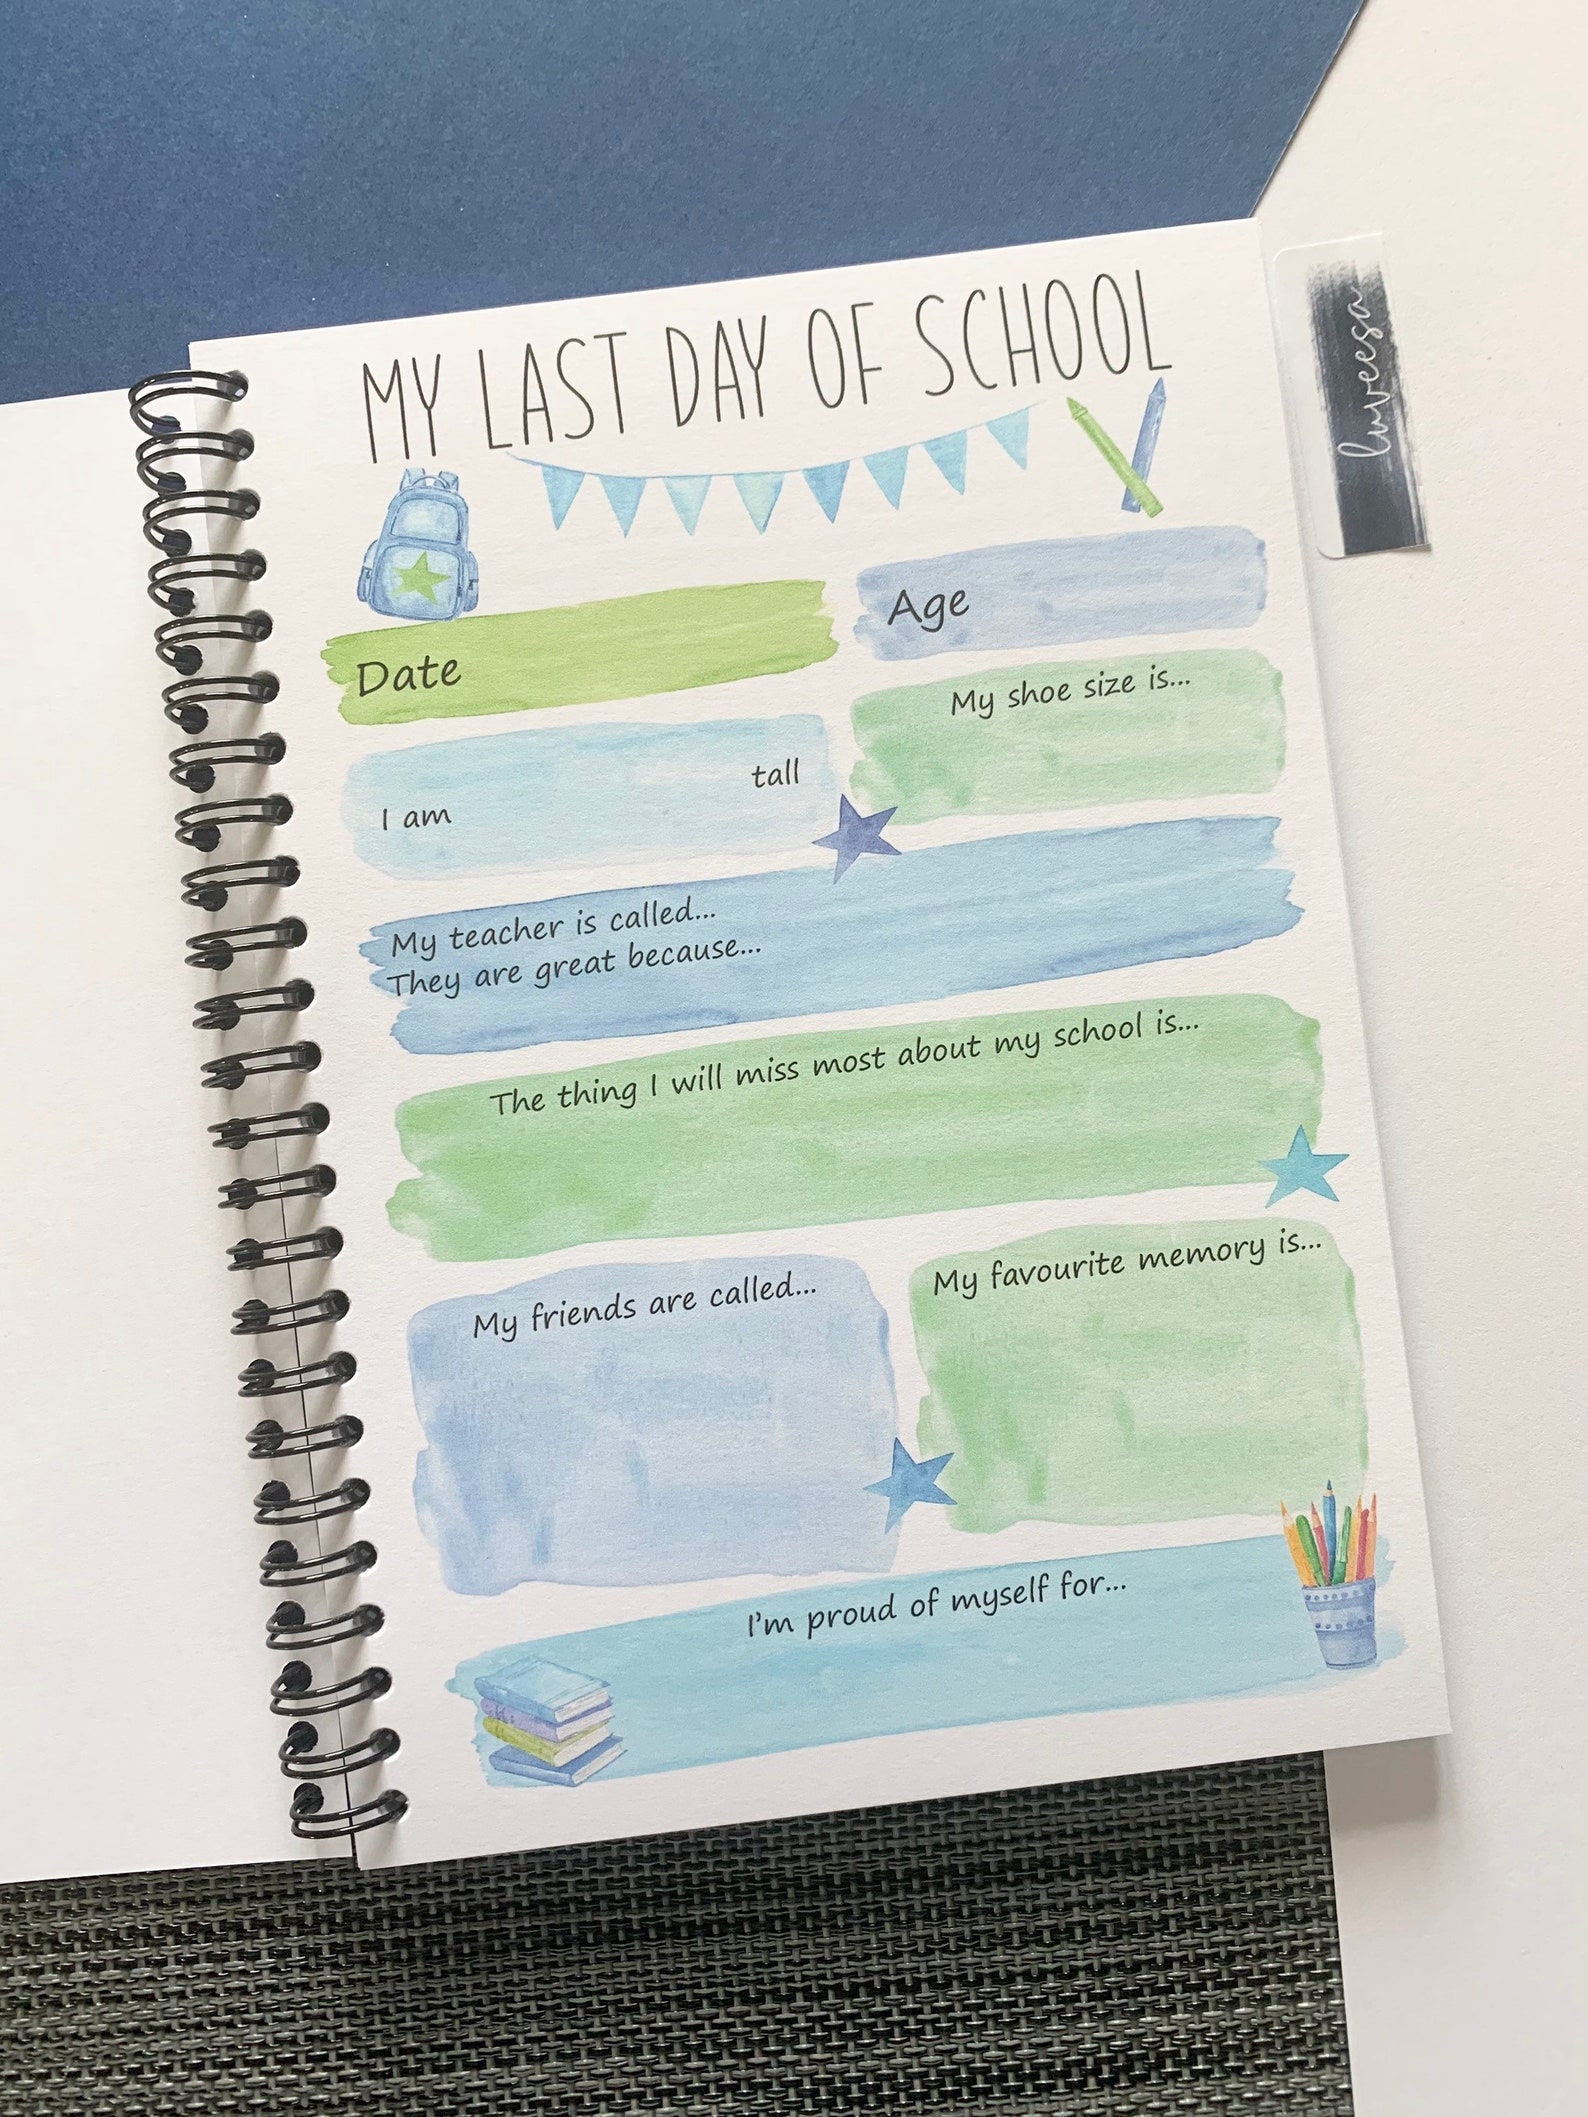 MY LAST DAY OF SCHOOL
luveesa
Date
Age
My shoe size is...
I am
tall
My teacher is called...
They are great because...
The thing I will miss most about my school is...
My friends are called...
My favourite memory is...
I'm proud of myself for...